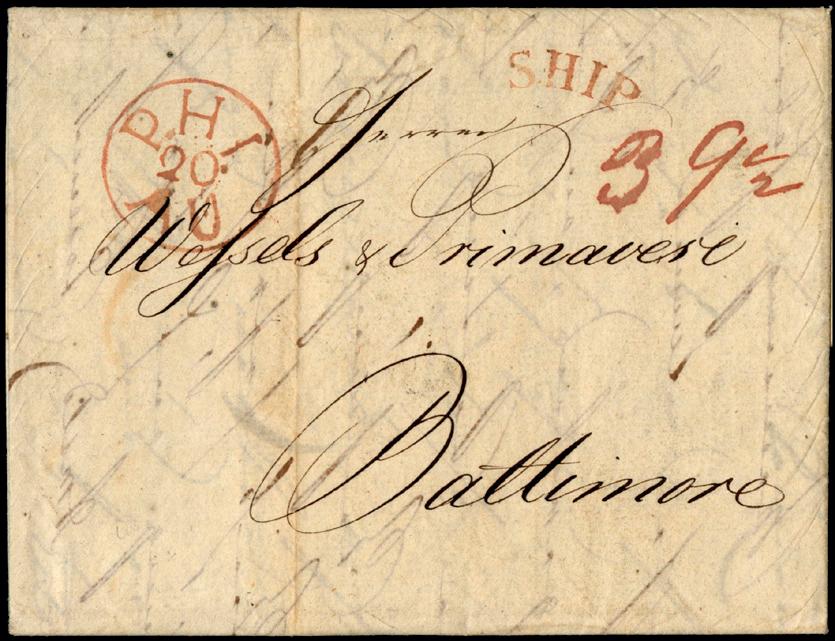 SHIP
PHI
20
AU
39½
Herren
Wessels & Primavesi
Baltimore